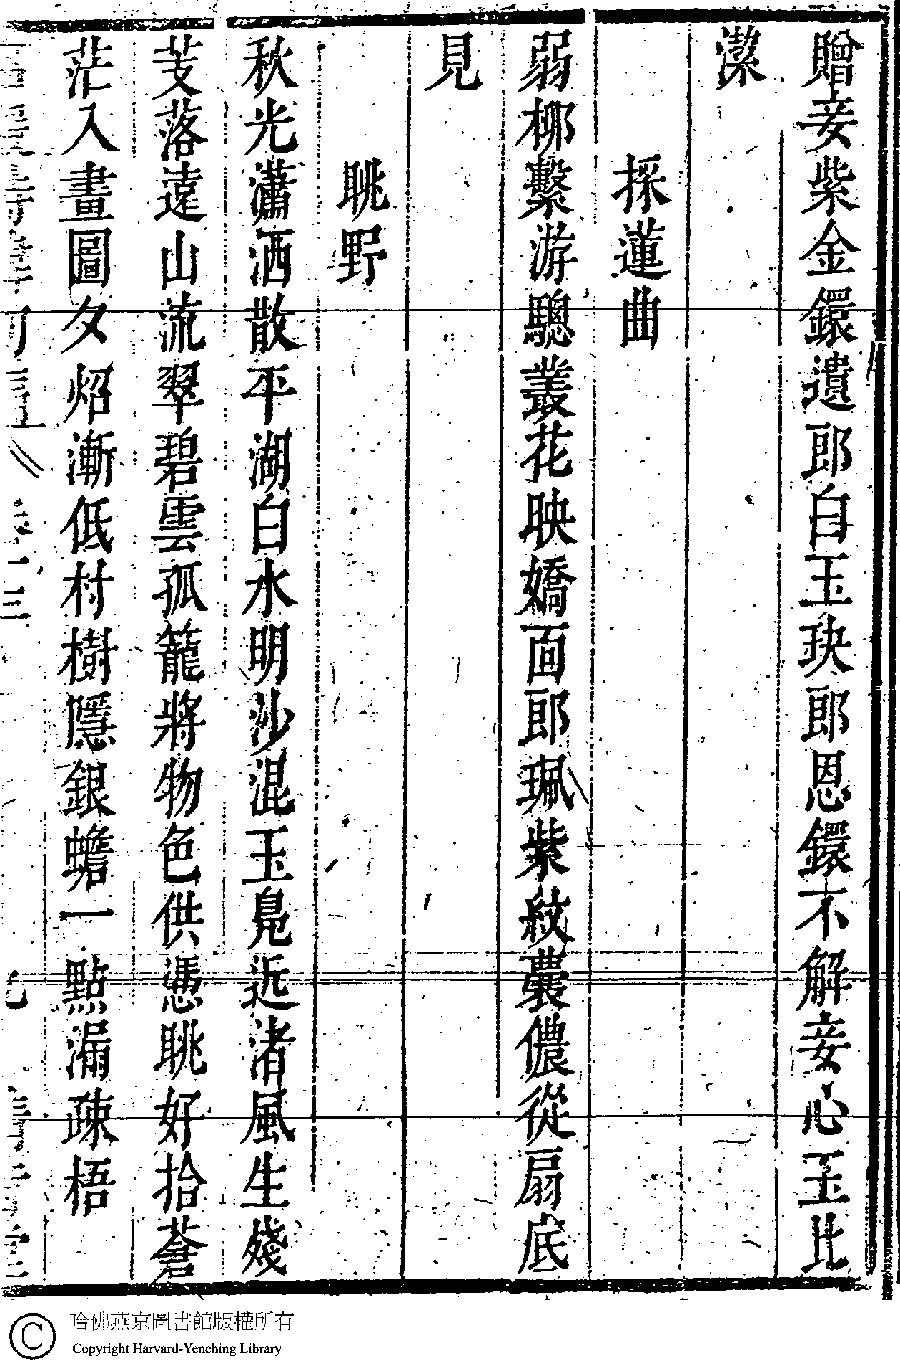 贈妾紫金鐶遺郎白玉玦郎恩鐶不解妾心玉比
潔
採蓮曲
弱柳繫游驄叢花映嬌面郎珮紫紋囊儂從扇底
見
眺野
秋光瀟洒散平湖白水明沙混玉鳧近渚風生殘
芰落遠山流翠碧雲孤籠將物色供憑眺好拾蒼
茫入畫圖夕炤漸低村樹隱銀蟾一點漏疎梧
哈佛燕京圖書館版權所有
Copyright Harvard-Yenching Library